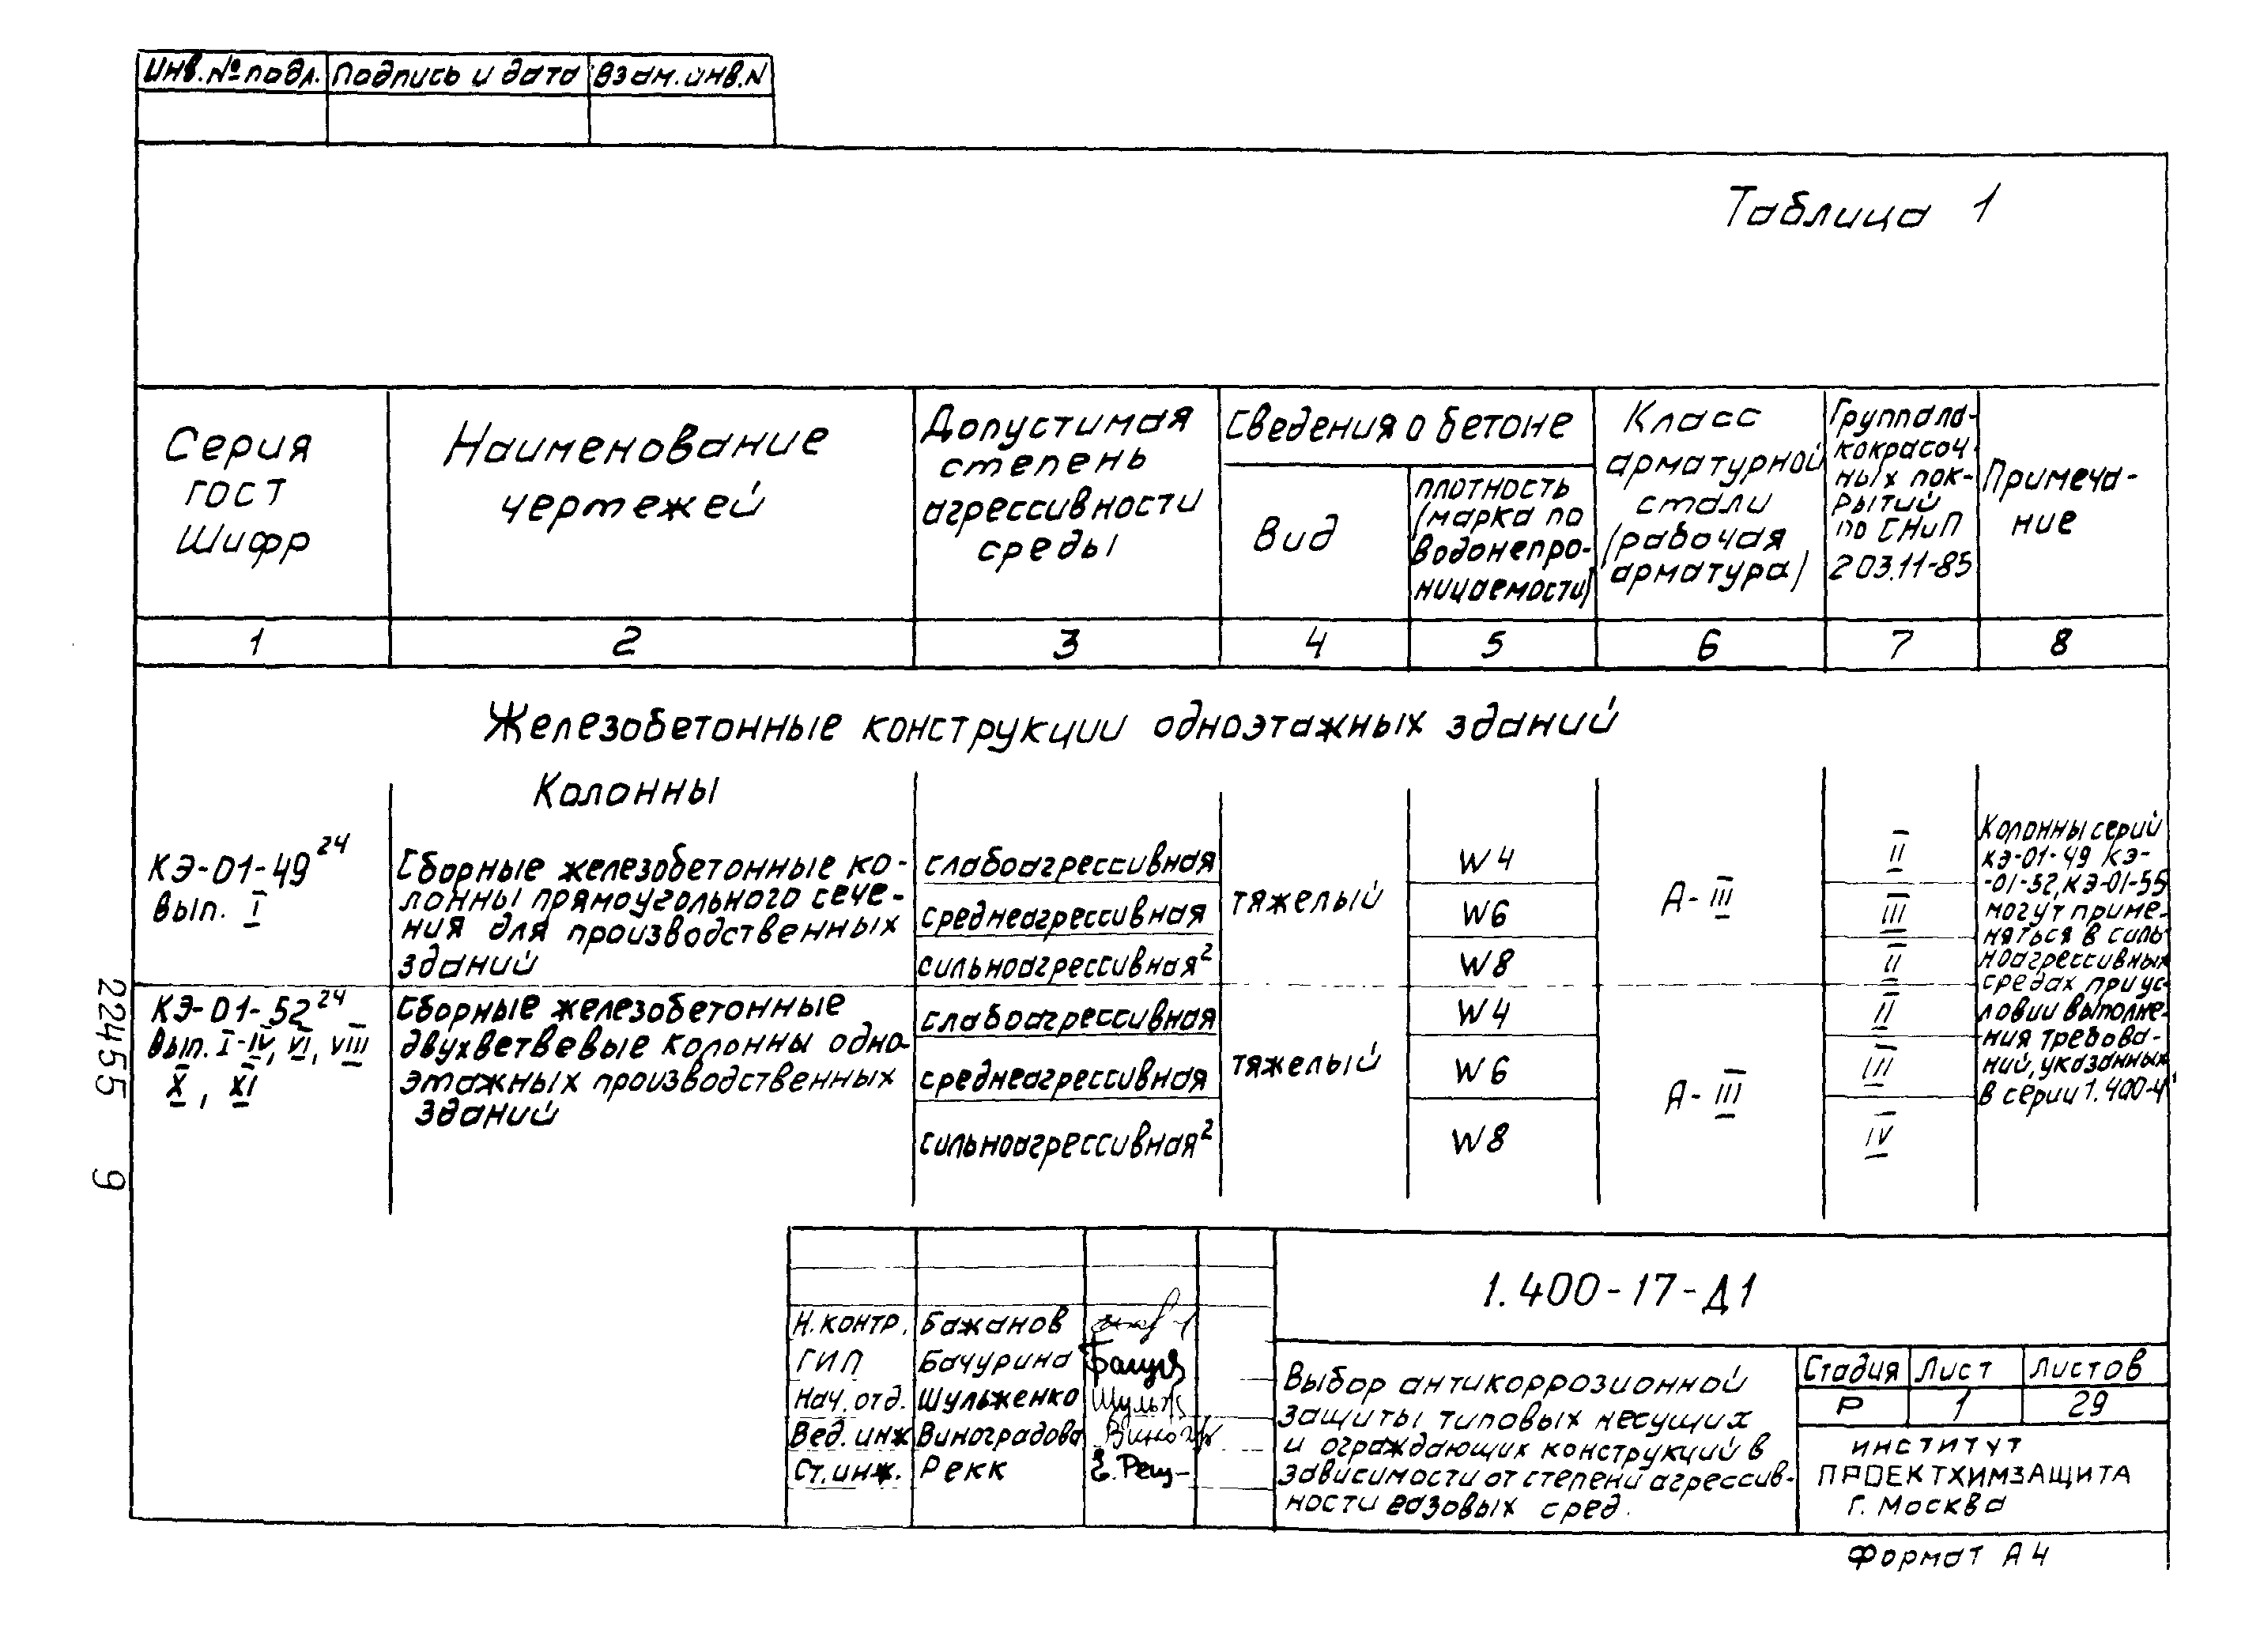 Инв.№подл. Подпись и дата Взам.инв.N
Таблица 1
Серия
ГОСТ
Шифр
Наименование
чертежей
Допустимая
степень
агрессивности
среды
Сведения о бетоне
Вид
плотность
(марка по
водонепро-
ницаемости)
Класс
арматурной
стали
(рабочая
арматура)
Группа ла-
кокрасоч-
ных пок-
рытий
по СНиП
2 03.11-85
Примеча-
ние
1 2 3 4 5 6 7 8
Железобетонные конструкции одноэтажных зданий
Колонны
КЭ-01-49 24
Вып. I
Сборные железобетонные ко-
лонны прямоугольного сече-
ния для производственных
зданий
слабоагрессивная
среднеагрессивная
сильноагрессивная 2
тяжелый
W4
W6
W8
А-III
II
III
II
КЭ-01-52 24
Вып. I-IV, VI, VIII
X, XI
Сборные железобетонные
двухветвевые колонны одно-
этажных производственных
зданий
слабоагрессивная
среднеагрессивная
сильноагрессивная 2
тяжелый
W4
W6
W8
А-III
II
III
IV
Колонны серий
КЭ-01-49 КЭ-
-01-52, КЭ-01-55
могут приме-
няться в силь
ноагрессивных
средах при ус-
ловии выполне-
ния требова-
ний, указанных
в серии 1.400-4
22455 9
1.400-17-Д1
Н.контр. Бажанов
ГИП Бачурина
Нач.отд. Шульженко
Вед.инж Виноградова
Ст.инж. Рекк
Выбор антикоррозионной
защиты типовых несущих
и ограждающих конструкций в
зависимости от степени агрессив-
ности газовых сред.
Стадия Лист Листов
Р 1 29
ИНСТИТУТ
ПРОЕКТХИМЗАЩИТА
г. Москва
Формат А4